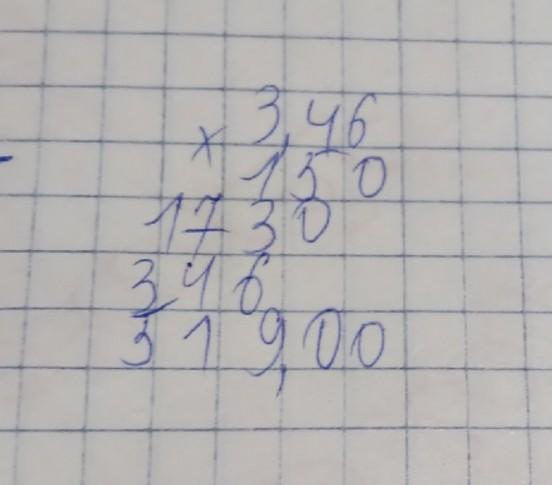 3,46
× 150
1730
346
319,00